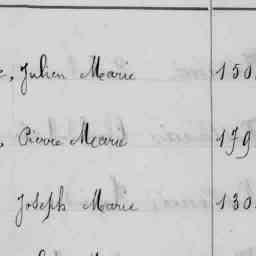 , Julien Marie 150
, Pierre Marie 179
Joseph Marie 130